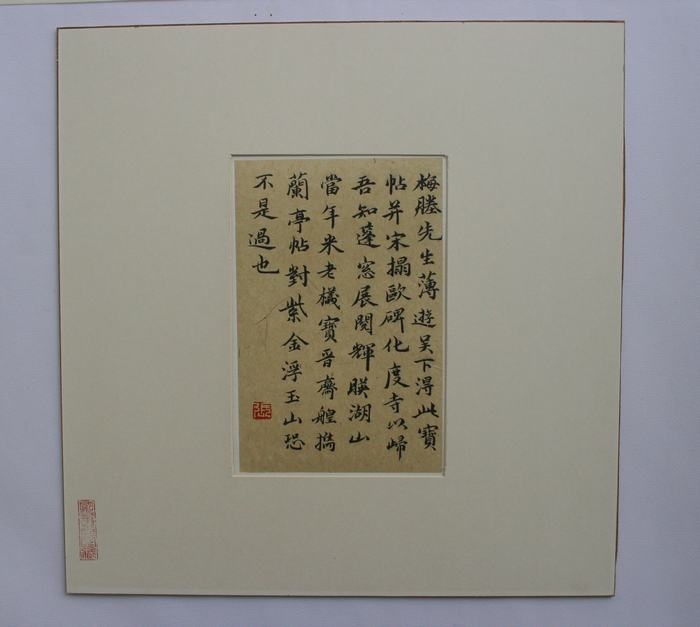 梅塍先生薄遊吳下得此寶
帖并宋搨歐碑化度寺以歸
吾知蓬窓展閱輝暎湖山
當年米老檥寶晉齋艎擕
蘭亭帖對紫金浮玉山恐
不是過也